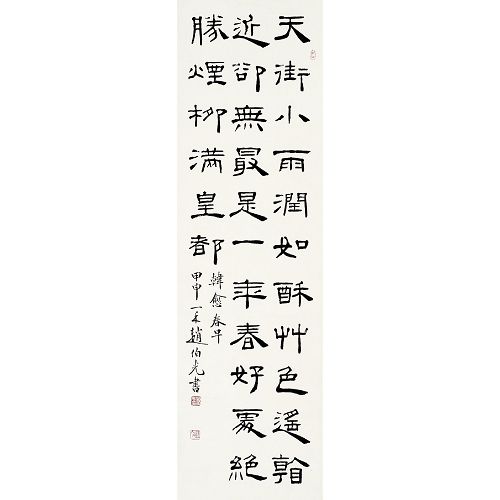 天街小雨潤如酥艸色遙看
近卻無最是一年春好處絕
勝煙柳滿皇都
韓愈春早
甲申趙伯光書